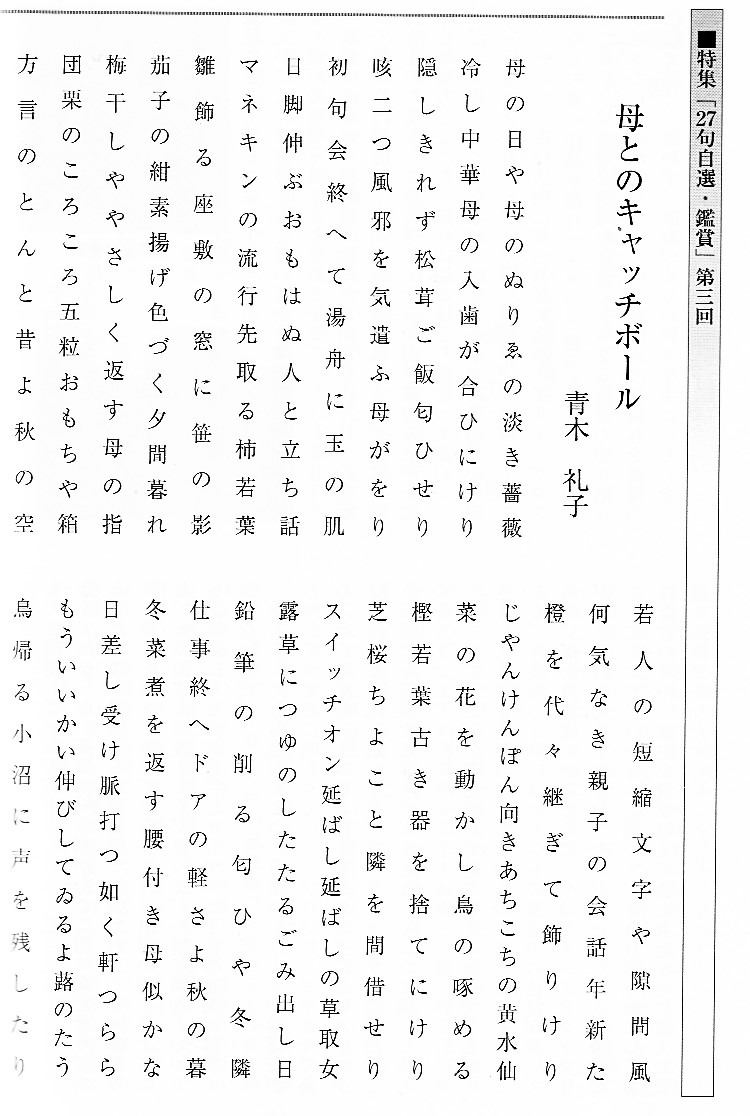 ■特集「27句自選・鑑賞」第三回
母とのキャッチボール
青木 礼子
母の日や母のぬりゑの淡き薔薇
冷し中華母の入歯が合ひにけり
隠しきれず松茸ご飯匂ひせり
咳二つ風邪を気遣ふ母がをり
初句会終へて湯舟に玉の肌
日脚伸ぶおもはぬ人と立ち話
マネキンの流行先取る柿若葉
雛飾る座敷の窓に笹の影
茄子の紺素揚げ色づく夕間暮れ
梅干しややさしく返す母の指
団栗のころころ五粒おもちや箱
方言のとんと昔よ秋の空
若人の短縮文字や隙間風
何気なき親子の会話年新た
橙を代々継ぎて飾りけり
じやんけんぽん向きあちこちの黄水仙
菜の花を動かし鳥の啄める
樫若葉古き器を捨てにけり
芝桜ちよこと隣を間借せり
スイッチオン延ばし延ばしの草取女
露草につゆのしたたるごみ出し日
鉛筆の削る匂ひや冬隣
仕事終へドアの軽さよ秋の暮
冬菜煮を返す腰付き母似かな
日差し受け脈打つ如く軒つらら
もういいかい伸びしてゐるよ蕗のたう
鳥帰る小沼に声を残したり